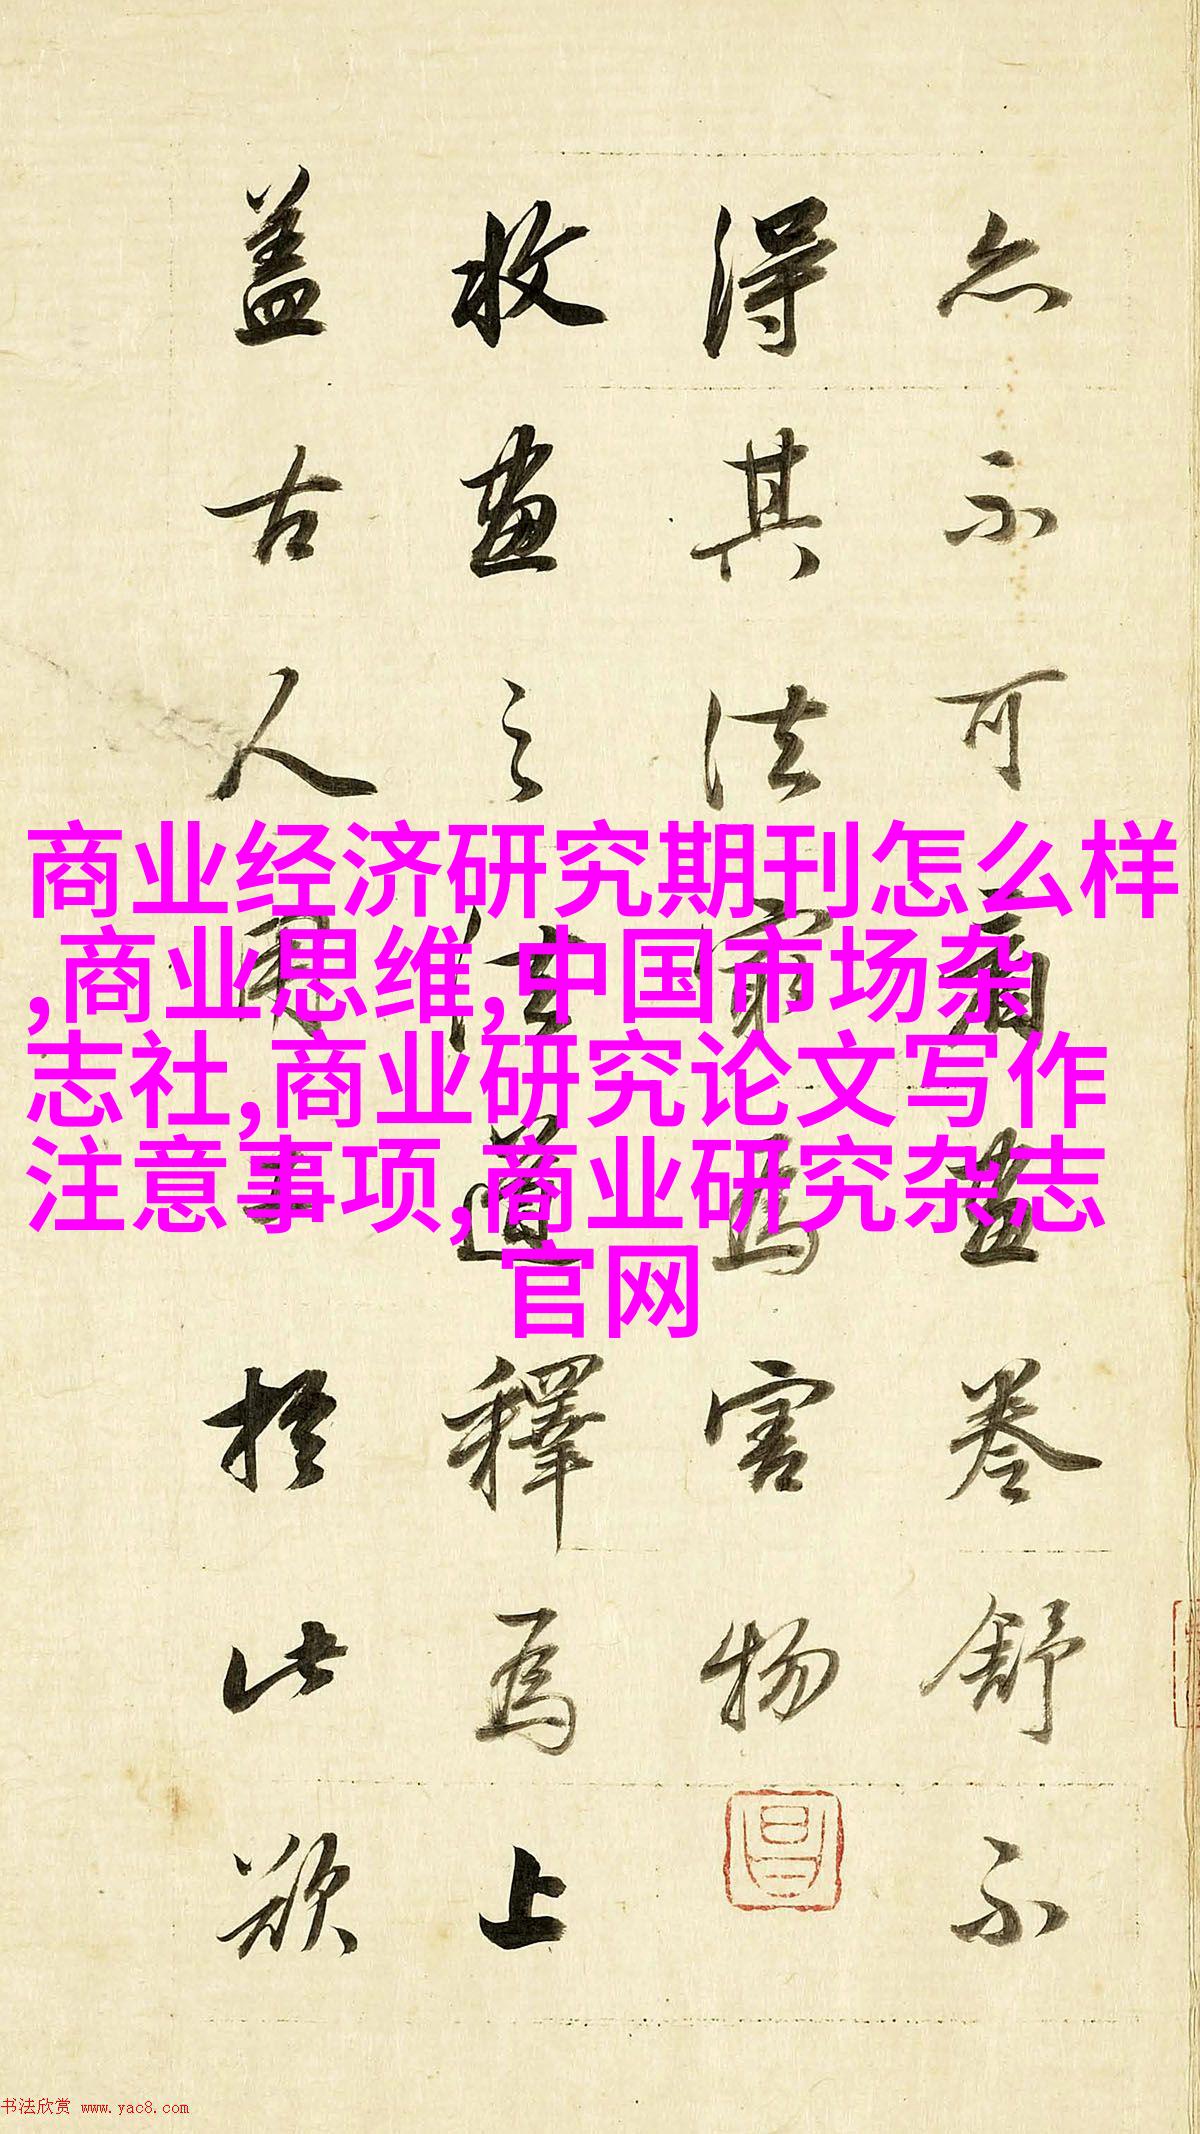 商业经济研究期刊怎么样
,商业思维,中国市场杂
志社,商业研究论文写作
注意事项,商业研究杂志
官网
亦不可蓋卷舒不
得其法最為害物
收畫之法道釋為上
蓋古人用工於此欲
书法欣赏 www.yac8.com